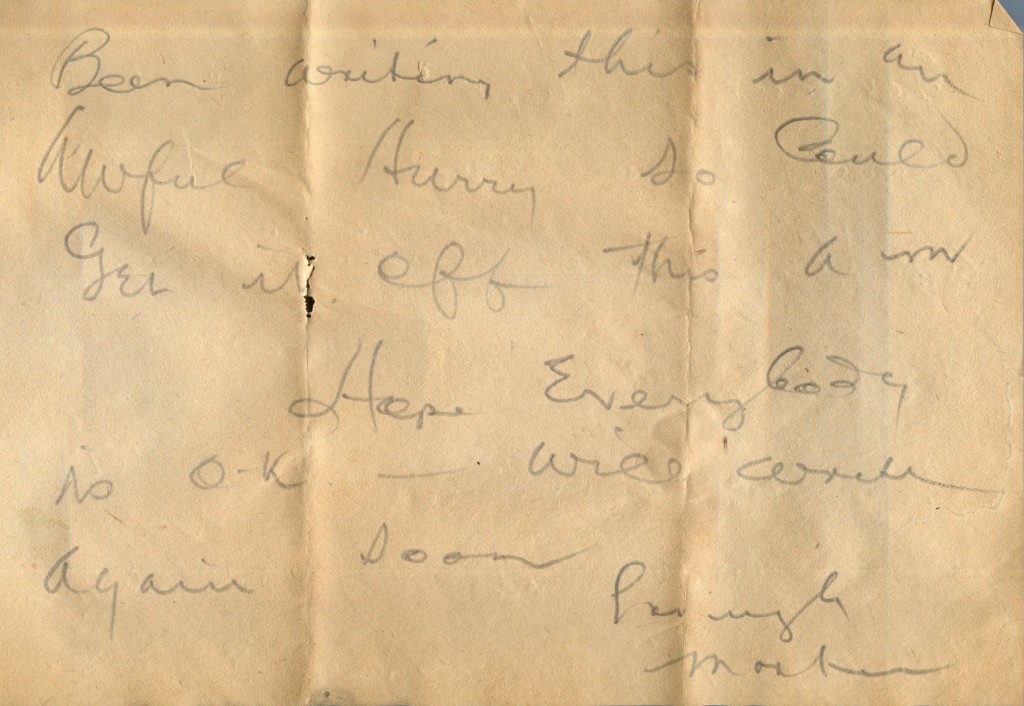 Been writing this in an
Awful Hurry so Could
Get it off this a m
Hope Everybody
is O-K — will write
Again soon